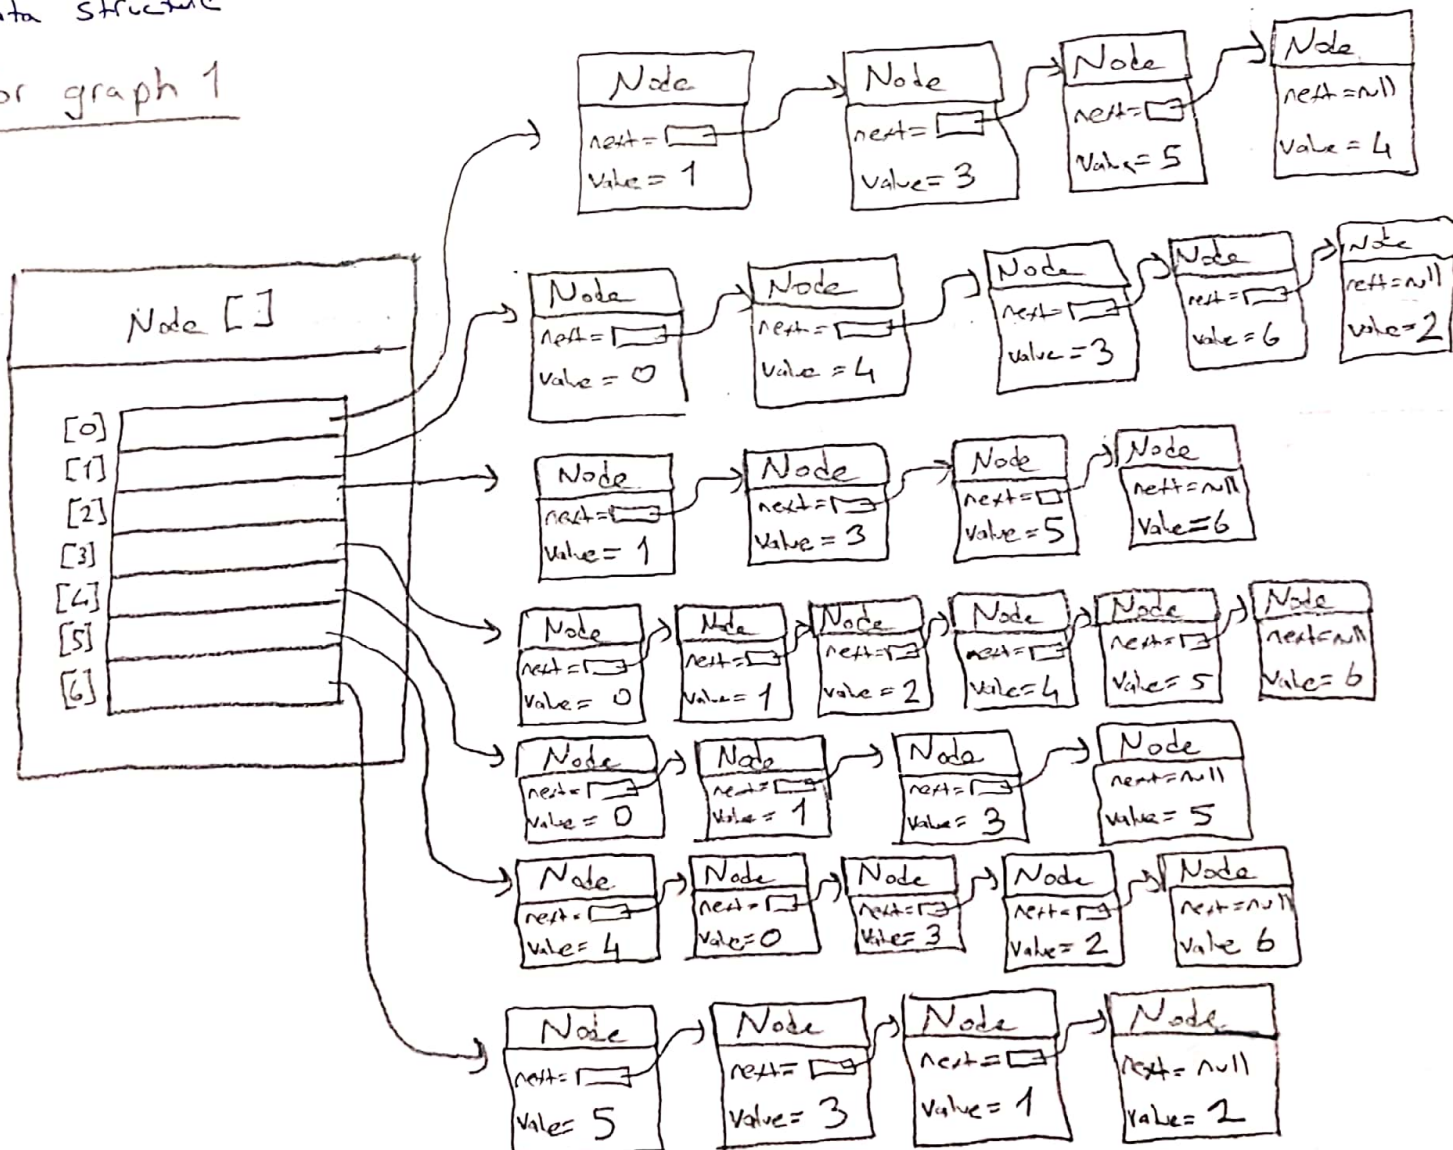 structure
or graph 1
Node
next=
Value = 1
Node
next=
Value = 3
Node
next=
Value = 5
Node
next=null
Value = 4
Node []
[0]
[1]
[2]
[3]
[4]
[5]
[6]
Node
next=
Value = 0
Node
next=
Value = 4
Node
next=
Value = 3
Node
next=
Value = 6
Node
next=null
Value = 2
Node
next=
Value = 1
Node
next=
Value = 3
Node
next=
Value = 5
Node
next=null
Value = 6
Node
next=
Value = 0
Node
next=
Value = 1
Node
next=
Value = 2
Node
next=
Value = 4
Node
next=
Value = 5
Node
next=null
Value = 6
Node
next=
Value = 0
Node
next=
Value = 1
Node
next=
Value = 3
Node
next=null
Value = 5
Node
next=
Value = 4
Node
next=
Value = 0
Node
next=
Value = 3
Node
next=
Value = 2
Node
next=null
Value 6
Node
next=
Value = 5
Node
next=
Value = 3
Node
next=
Value = 1
Node
next= null
Value = 2